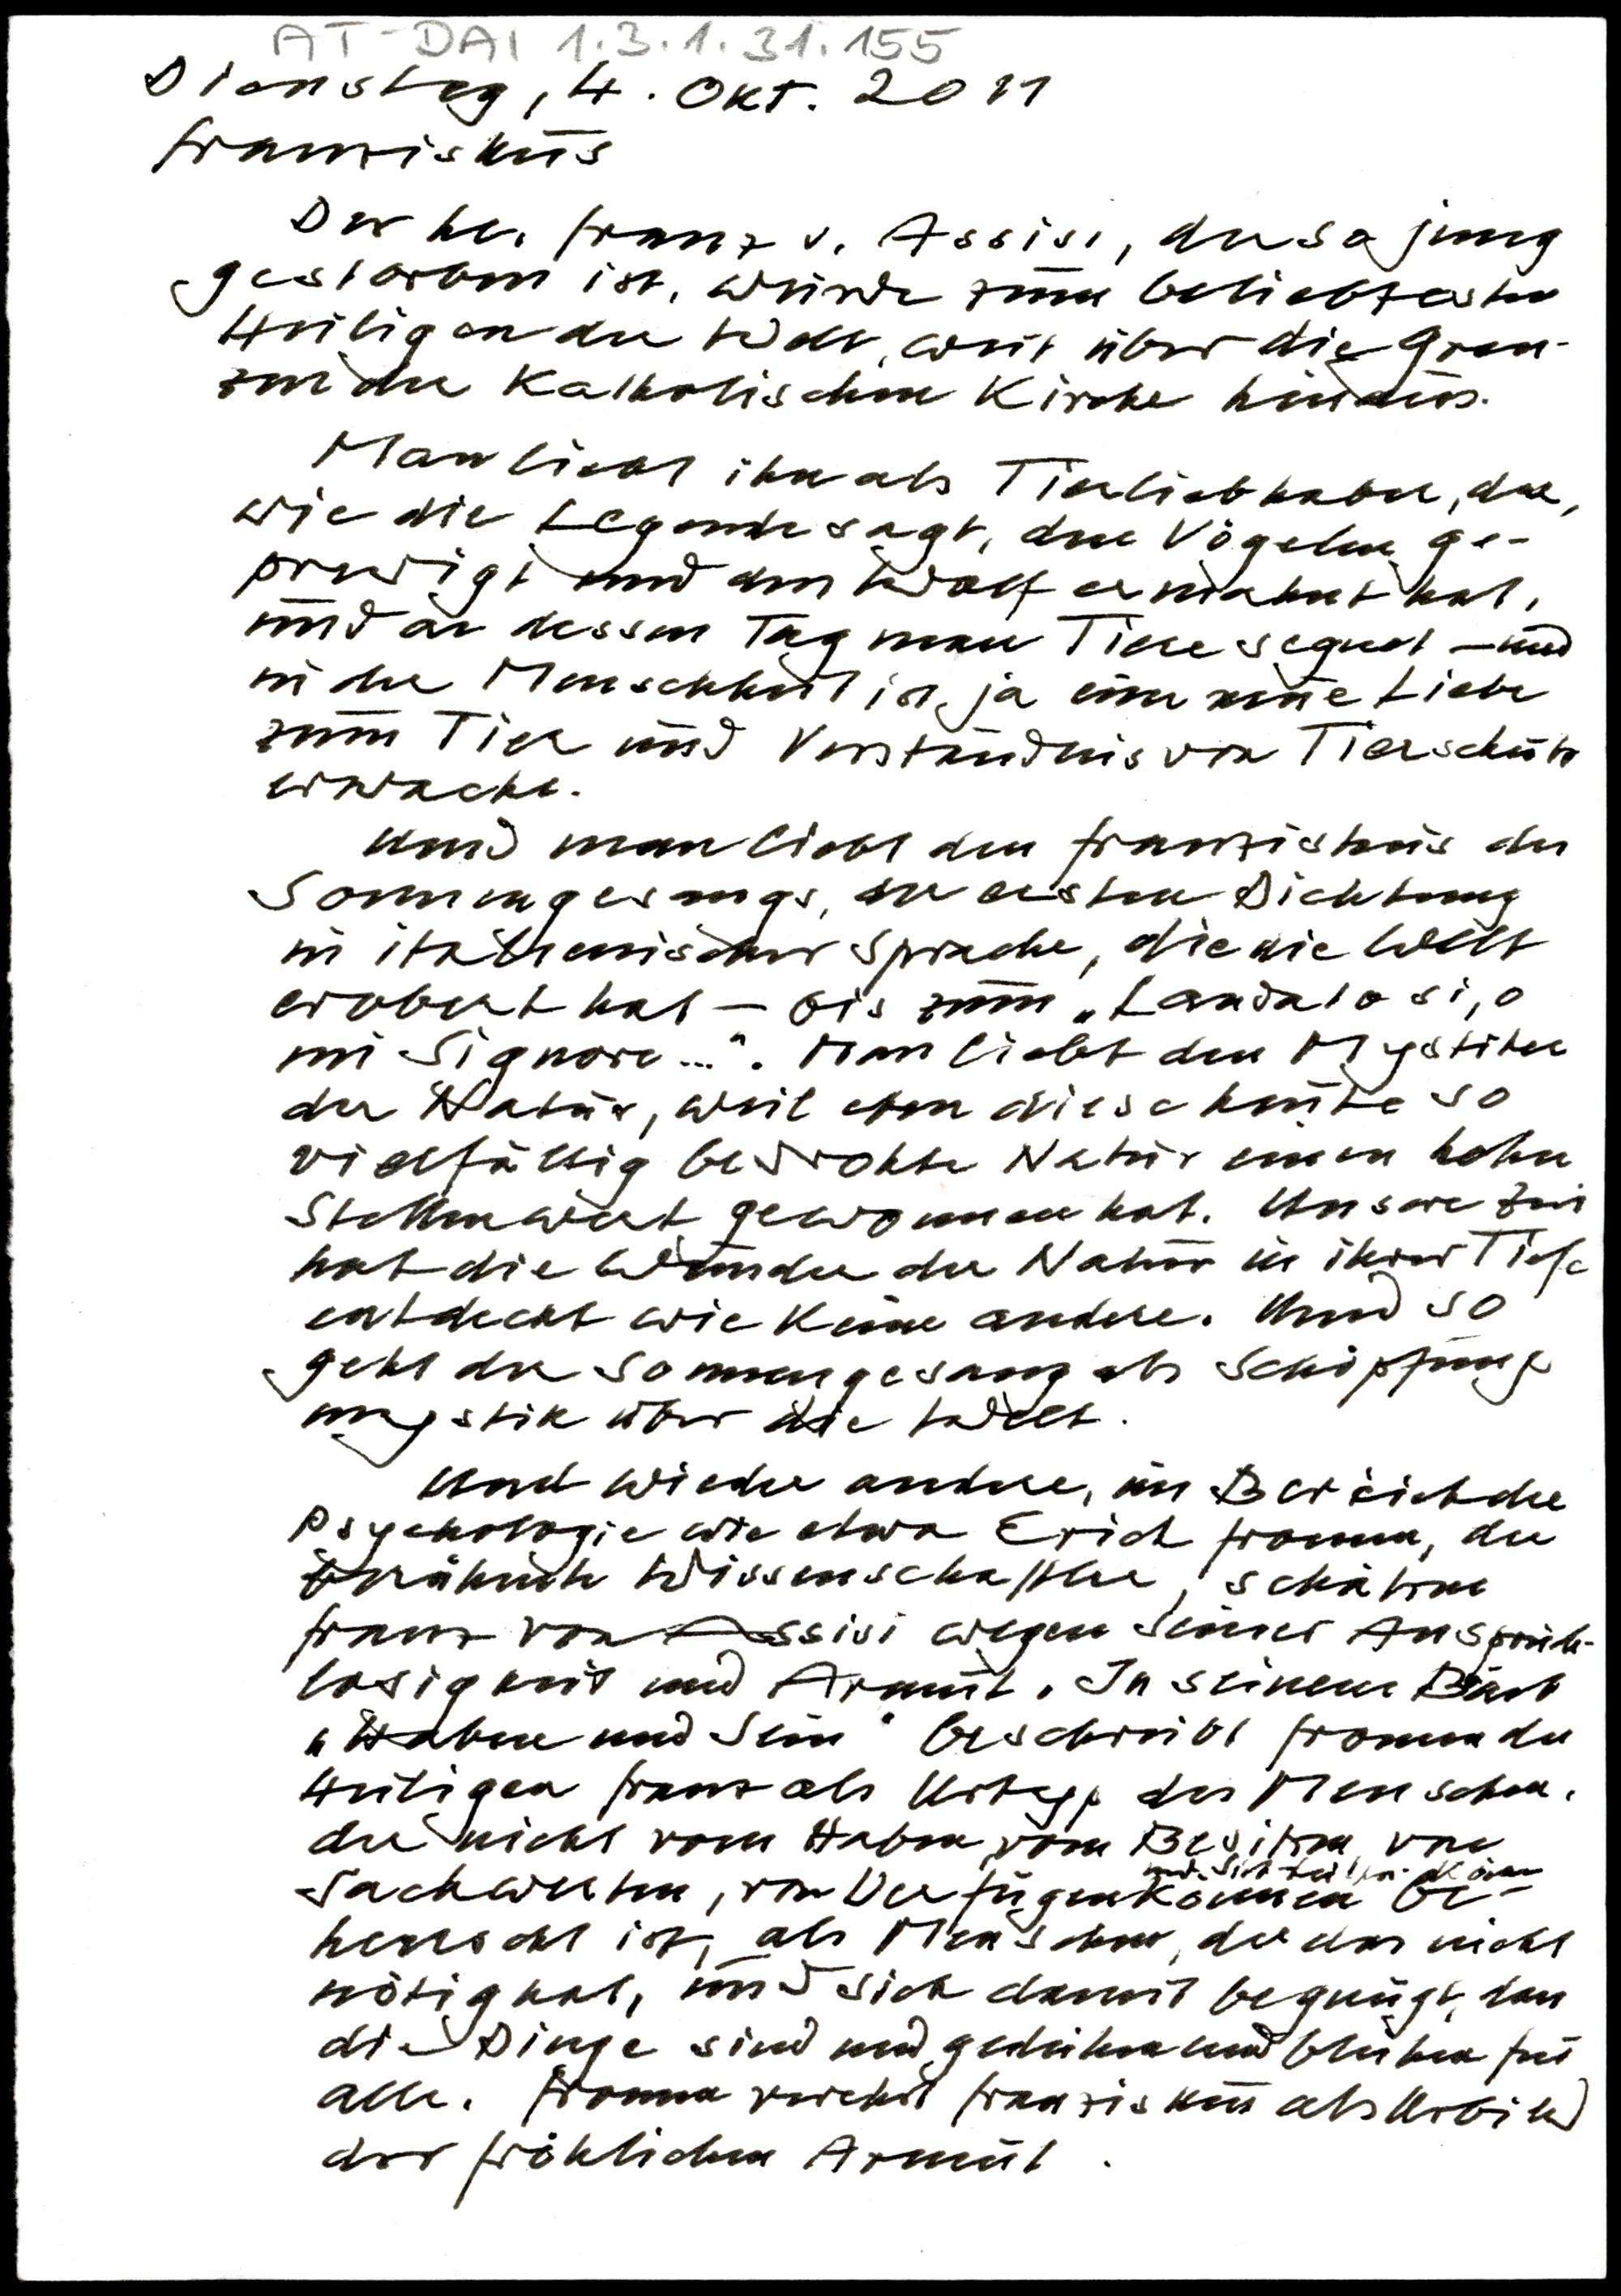 AT-DAI 1.3.1.31.155
Dienstag, 4. Okt. 2011
Franziskus
Der hl. Franz v. Assisi, der so jung
gestorben ist, wurde zum beliebtesten
Heiligen der Welt, weit über die Gren-
zen der Katholischen Kirche hinaus.
Man liebt ihn als Tierliebhaber, der,
wie die Legende sagt, den Vögeln ge-
predigt und den Wolf ermahnt hat,
und an dessen Tag man Tiere segnet – und
in der Menschheit ist ja eine neue Liebe
zum Tier und Verständnis von Tierschutz
erwacht.
Und man liebt den Franziskus des
Sonnengesangs, der ersten Dichtung
in italienischer Sprache, die die Welt
erobert hat – bis zum „Laudato si, o
mi Signore...". Man liebt den Mystiker
der Natur, weil eben diese heute so
vielfältig bedrohte Natur einen hohen
Stellenwert gewonnen hat. Unsere Zeit
hat die Wunder der Natur in ihrer Tiefe
entdeckt wie keine andere. Und so
geht der Sonnengesang als Schöpfungs
mystik über die Welt.
Und wieder andere, im Bereich der
Psychologie wie etwa Erich Fromm, der
berühmte Wissenschaftler, schätzen
Franz von Assisi wegen seiner Anspruchs-
losigkeit und Armut. In seinem Buch
„Haben und Sein" beschreibt Fromm den
Heiligen Franz als Urtyp des Menschen,
der nicht vom Haben, vom Besitzen von
Sachwerten, von Verfügenkönnen be-
herrscht ist, als Menschen, der das nicht
nötig hat, und sich damit begnügt, dass
die Dinge sind und gedeihen und blühen für
alle. Fromm verehrt Franziskus als Urbild
der fröhlichen Armut.